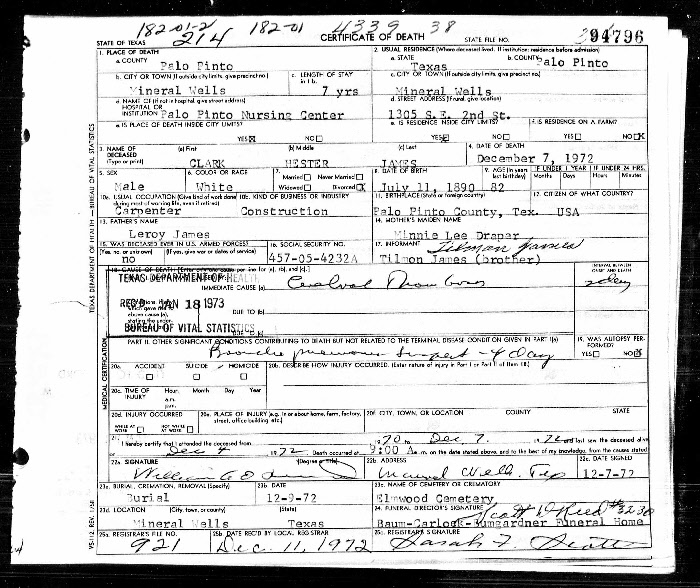 182-01-2 182-01 4339 38
214
STATE OF TEXAS CERTIFICATE OF DEATH STATE FILE NO. 94796
1. PLACE OF DEATH
a. COUNTY
Palo Pinto
2. USUAL RESIDENCE (Where deceased lived. If institution: residence before admission)
a. STATE b. COUNTY
Texas Palo Pinto
b. CITY OR TOWN (If outside city limits, give precinct no.) c. LENGTH OF STAY in 1 b.
Mineral Wells 7 yrs
c. CITY OR TOWN (If outside city limits, give precinct no.)
Mineral Wells
d. NAME OF (If not in hospital, give street address)
HOSPITAL OR
INSTITUTION Palo Pinto Nursing Center
d. STREET ADDRESS (If rural, give location)
1305 S.E. 2nd St.
e. IS PLACE OF DEATH INSIDE CITY LIMITS?
YES X NO
e. IS RESIDENCE INSIDE CITY LIMITS? f. IS RESIDENCE ON A FARM?
YES X NO YES NO X
3. NAME OF DECEASED (Type or print) (a) First (b) Middle (c) Last
CLARK HESTER JAMES
4. DATE OF DEATH
December 7, 1972
5. SEX 6. COLOR OR RACE 7. Married Never Married
Male White Widowed Divorced X
8. DATE OF BIRTH 9. AGE (In years last birthday) IF UNDER 1 YEAR IF UNDER 24 HRS.
Months Days Hours Min.
July 11, 1890 82
10a. USUAL OCCUPATION (Give kind of work done during most of working life, even if retired) 10b. KIND OF BUSINESS OR INDUSTRY
Carpenter Construction
11. BIRTHPLACE (State or foreign country) 12. CITIZEN OF WHAT COUNTRY?
Palo Pinto County, Tex. USA
13. FATHER'S NAME
Leroy James
14. MOTHER'S MAIDEN NAME
Minnie Lee Draper
15. WAS DECEASED EVER IN U.S. ARMED FORCES? 16. SOCIAL SECURITY NO.
(Yes, no, or unknown) (If yes, give war or dates of service)
no 457-05-4232A
17. INFORMANT Tilmon James
Tilmon James (brother)
18. CAUSE OF DEATH (Enter only one cause per line for (a), (b), and (c).) INTERVAL BETWEEN ONSET AND DEATH
TEXAS DEPARTMENT OF HEALTH
IMMEDIATE CAUSE (a)
REC'D JAN 18 1973
DUE TO (b)
BUREAU OF VITAL STATISTICS
DUE TO (c)
PART II. OTHER SIGNIFICANT CONDITIONS CONTRIBUTING TO DEATH BUT NOT RELATED TO THE TERMINAL DISEASE CONDITION GIVEN IN PART I(a)
19. WAS AUTOPSY PERFORMED?
YES NO X
20a. ACCIDENT SUICIDE HOMICIDE
20b. DESCRIBE HOW INJURY OCCURRED. (Enter nature of injury in Part I or Part II of item 18.)
20c. TIME OF INJURY Hour a.m. p.m. Month Day Year
20d. INJURY OCCURRED
WHILE AT WORK NOT WHILE AT WORK
20e. PLACE OF INJURY (e.g. in or about home, farm, factory, street, office building etc.)
20f. CITY, TOWN, OR LOCATION COUNTY STATE
21. I hereby certify that I attended the deceased from 1970 to Dec 7, 1972 and last saw the deceased alive
on Dec 4 1972 Death occurred at 9:00 A.m. on the date stated above, and to the best of my knowledge, from the causes stated
22a. SIGNATURE (Degree or Title) 22b. ADDRESS 22c. DATE SIGNED
12-7-72
23a. BURIAL, CREMATION, REMOVAL (Specify) 23b. DATE
Burial 12-9-72
23c. NAME OF CEMETERY OR CREMATORY
Elmwood Cemetery
23d. LOCATION (City, town, or county) (State)
Mineral Wells Texas
24. FUNERAL DIRECTOR'S SIGNATURE #3230
Baum-Carlock-Bumgardner Funeral Home
25a. REGISTRAR'S FILE NO. 25b. DATE REC'D BY LOCAL REGISTRAR 25c. REGISTRAR'S SIGNATURE
921 Dec 11, 1972
TEXAS DEPARTMENT OF HEALTH — BUREAU OF VITAL STATISTICS
MEDICAL CERTIFICATION